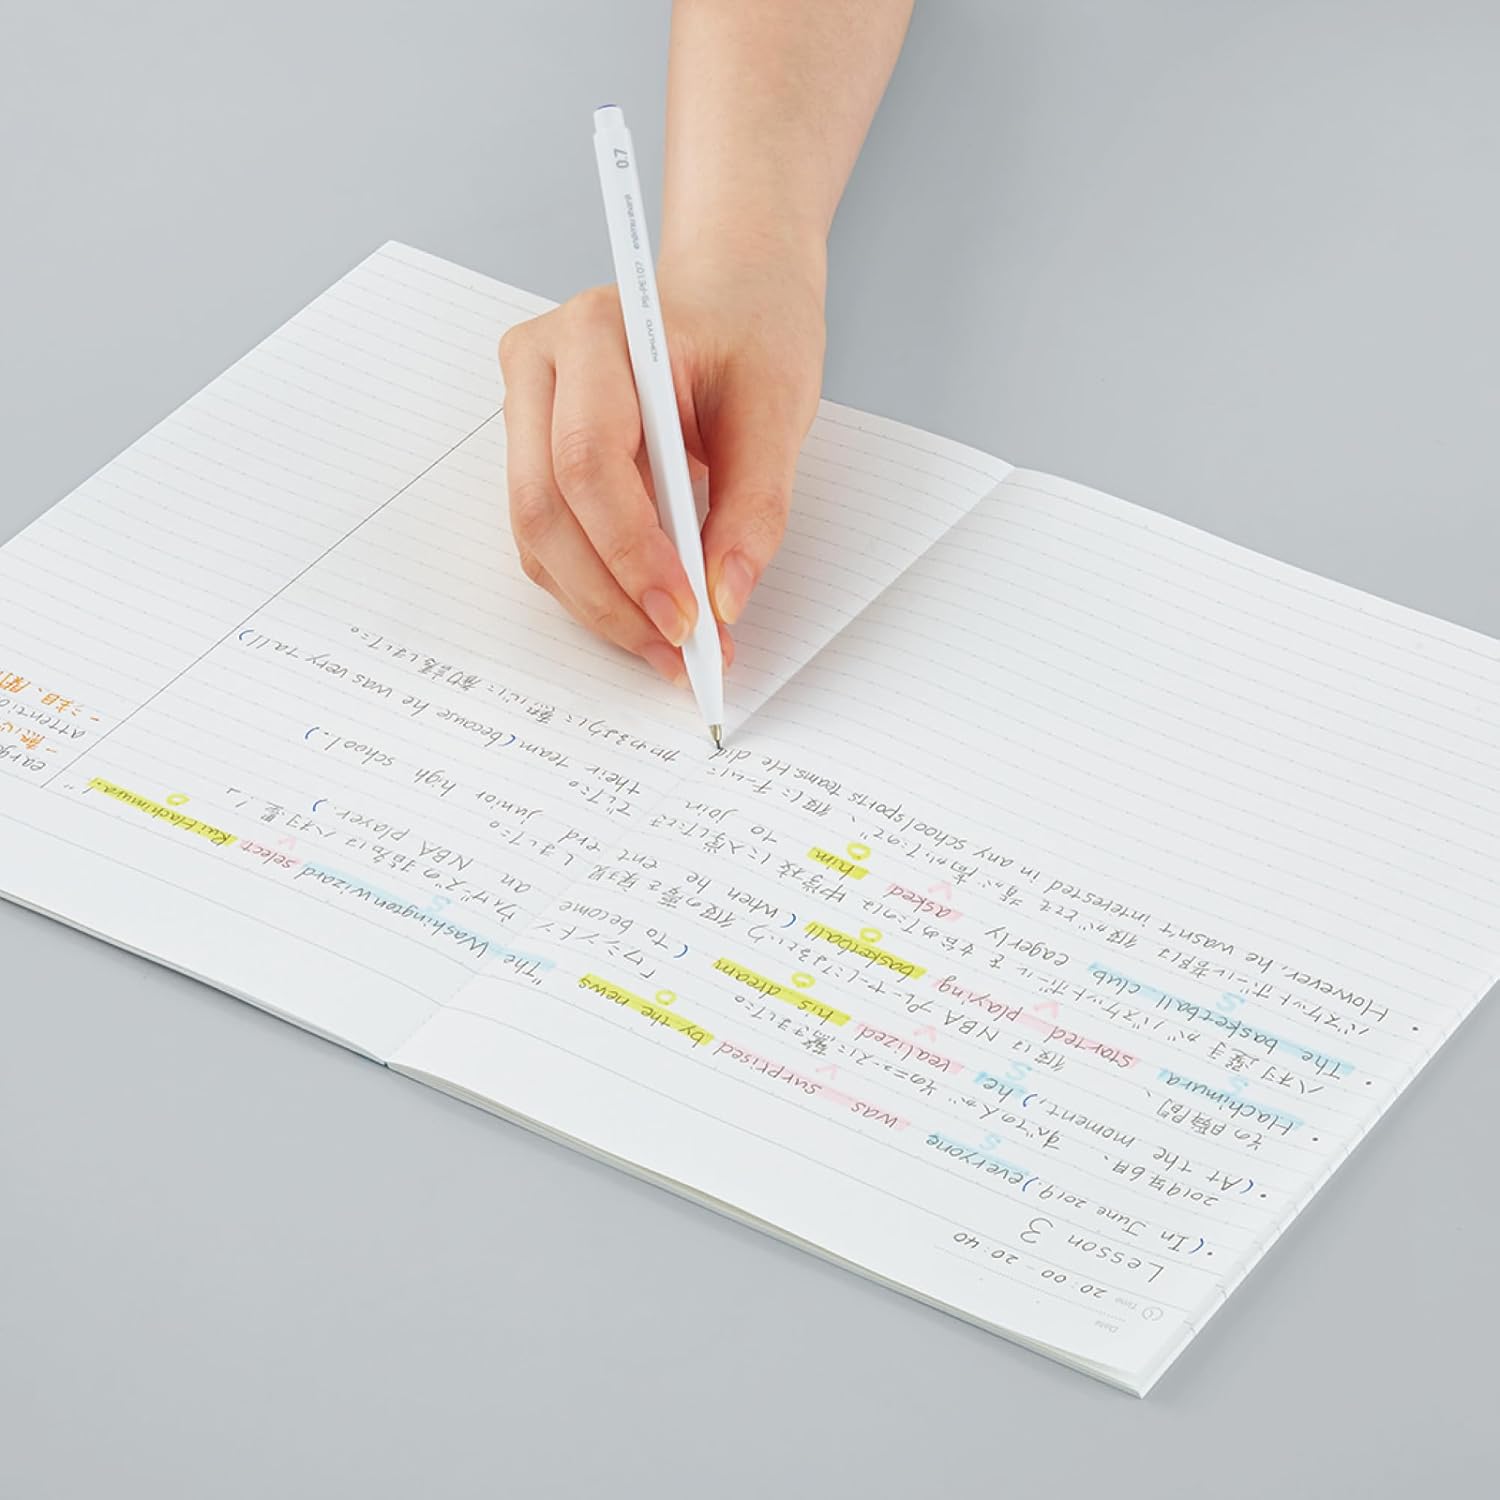 Date
Time 20:00 - 20:40
Lesson 3
・(In June 2019,) everyone was surprised by the news "The Washington Wizard select Rui Hachimura."
S V O S V O
2019年6月、すべての人がそのニュースに驚きました。「ワシントンウィザーズの指名はハチムラ塁!」
・(At the moment,) he realized his dream (to become an NBA player.)
S V O
その瞬間、彼は NBA プレーヤーになるという彼の夢を実現しました。
・Hachimura started playing basketball (when he enterd junior high school.)
S V O
ハチムラ選手がバスケットボールを始めたのは中学校に入学したときでした。
・The basketball club eagerly asked him to join their team (because he was very tall)
S V O
バスケットボール部は彼がとても背が高かったので、彼にチームに
かわるように熱心に勧誘しました。
However, he wasn't interested in any school sports teams. He did
attentio
0.7
KOKUYO PS-PE107